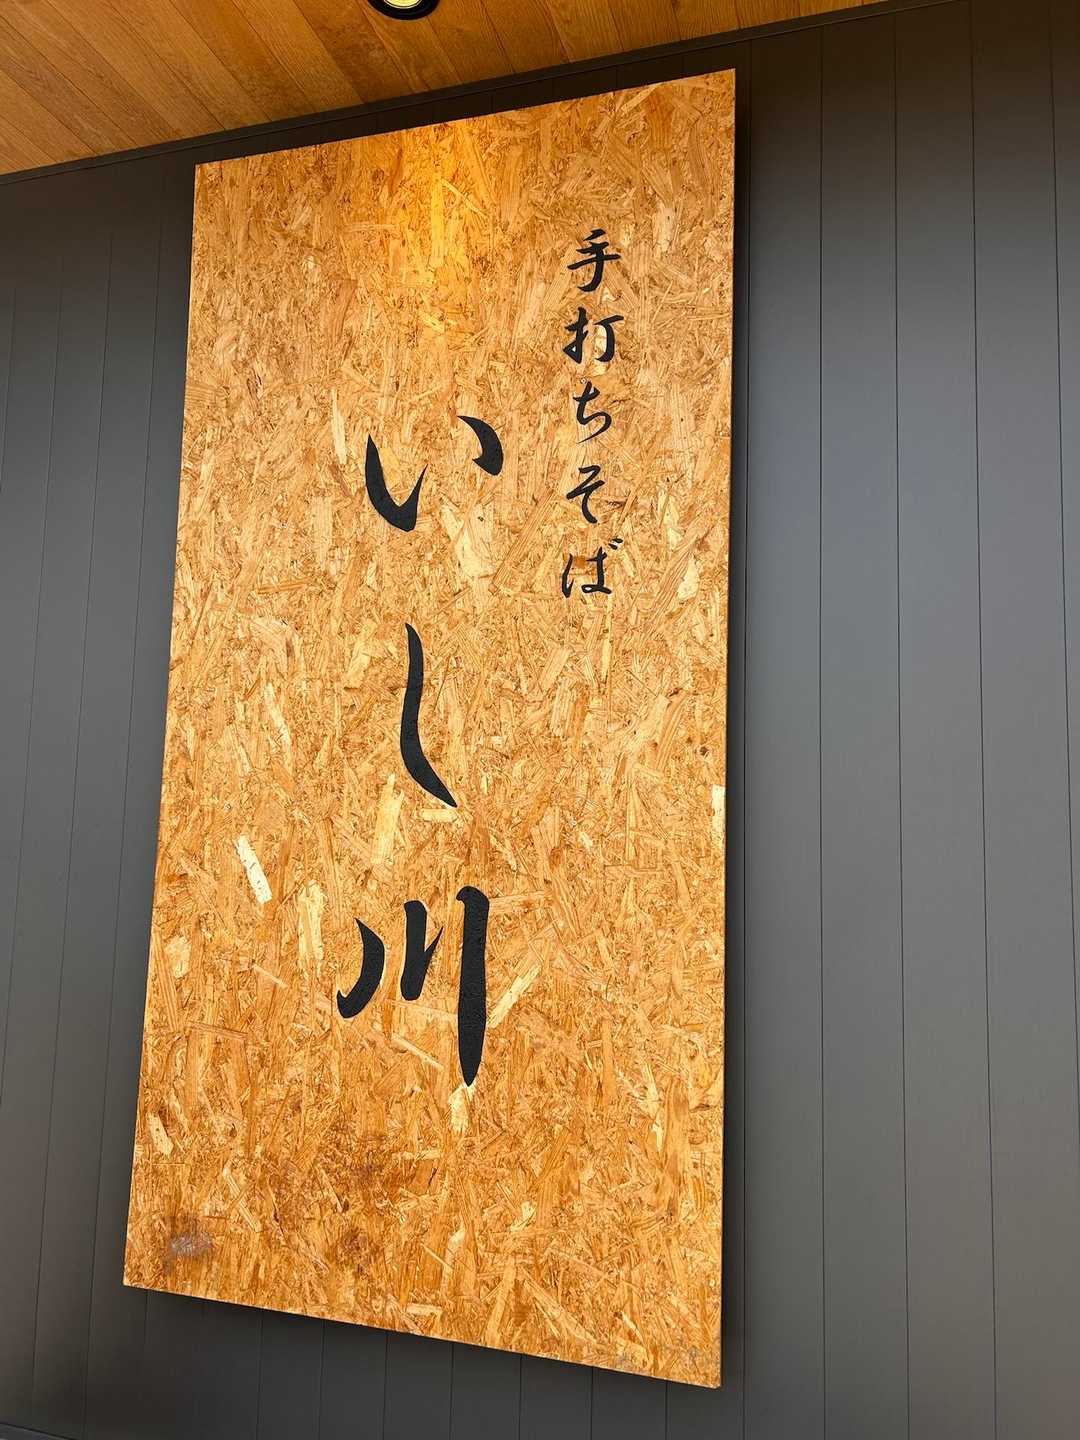 手打ちそば
いし川